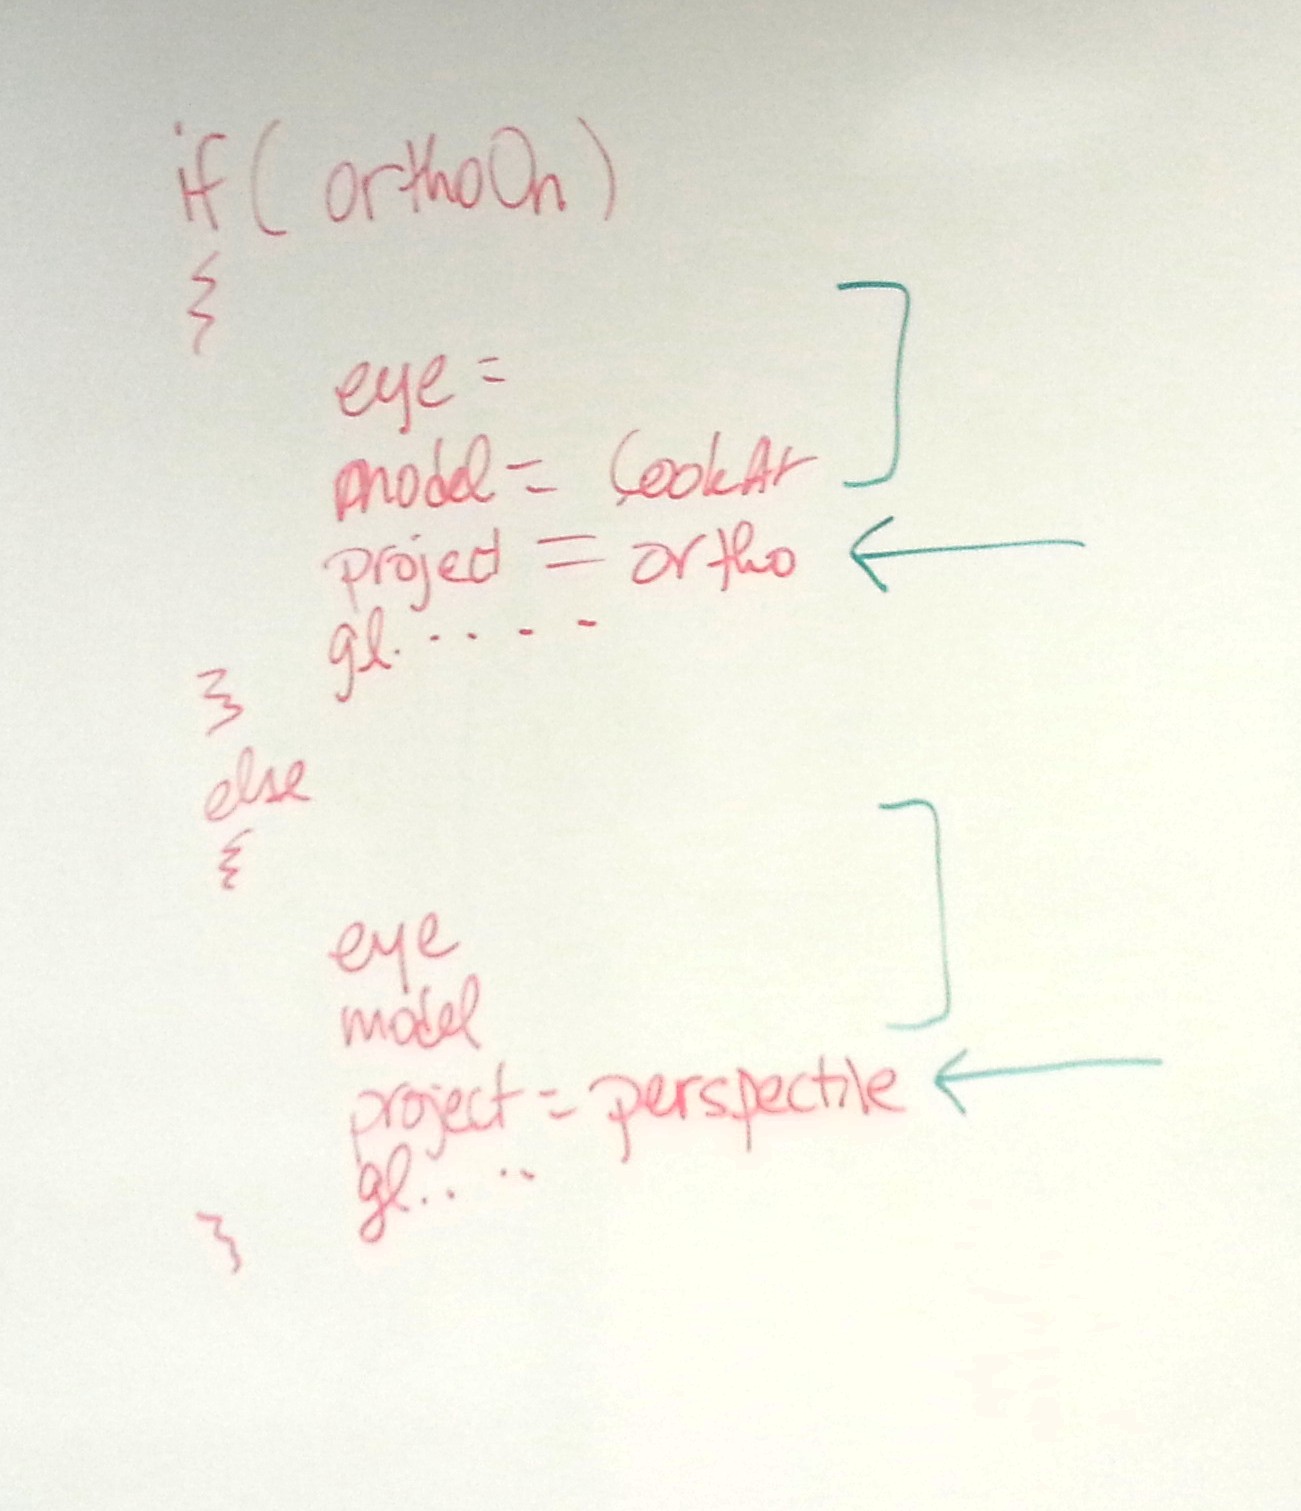 if ( orthoOn )
{
eye =
model = LookAt
project = ortho
gl. . . . .
}
else
{
eye
model
project = perspective
gl. . . . .
}